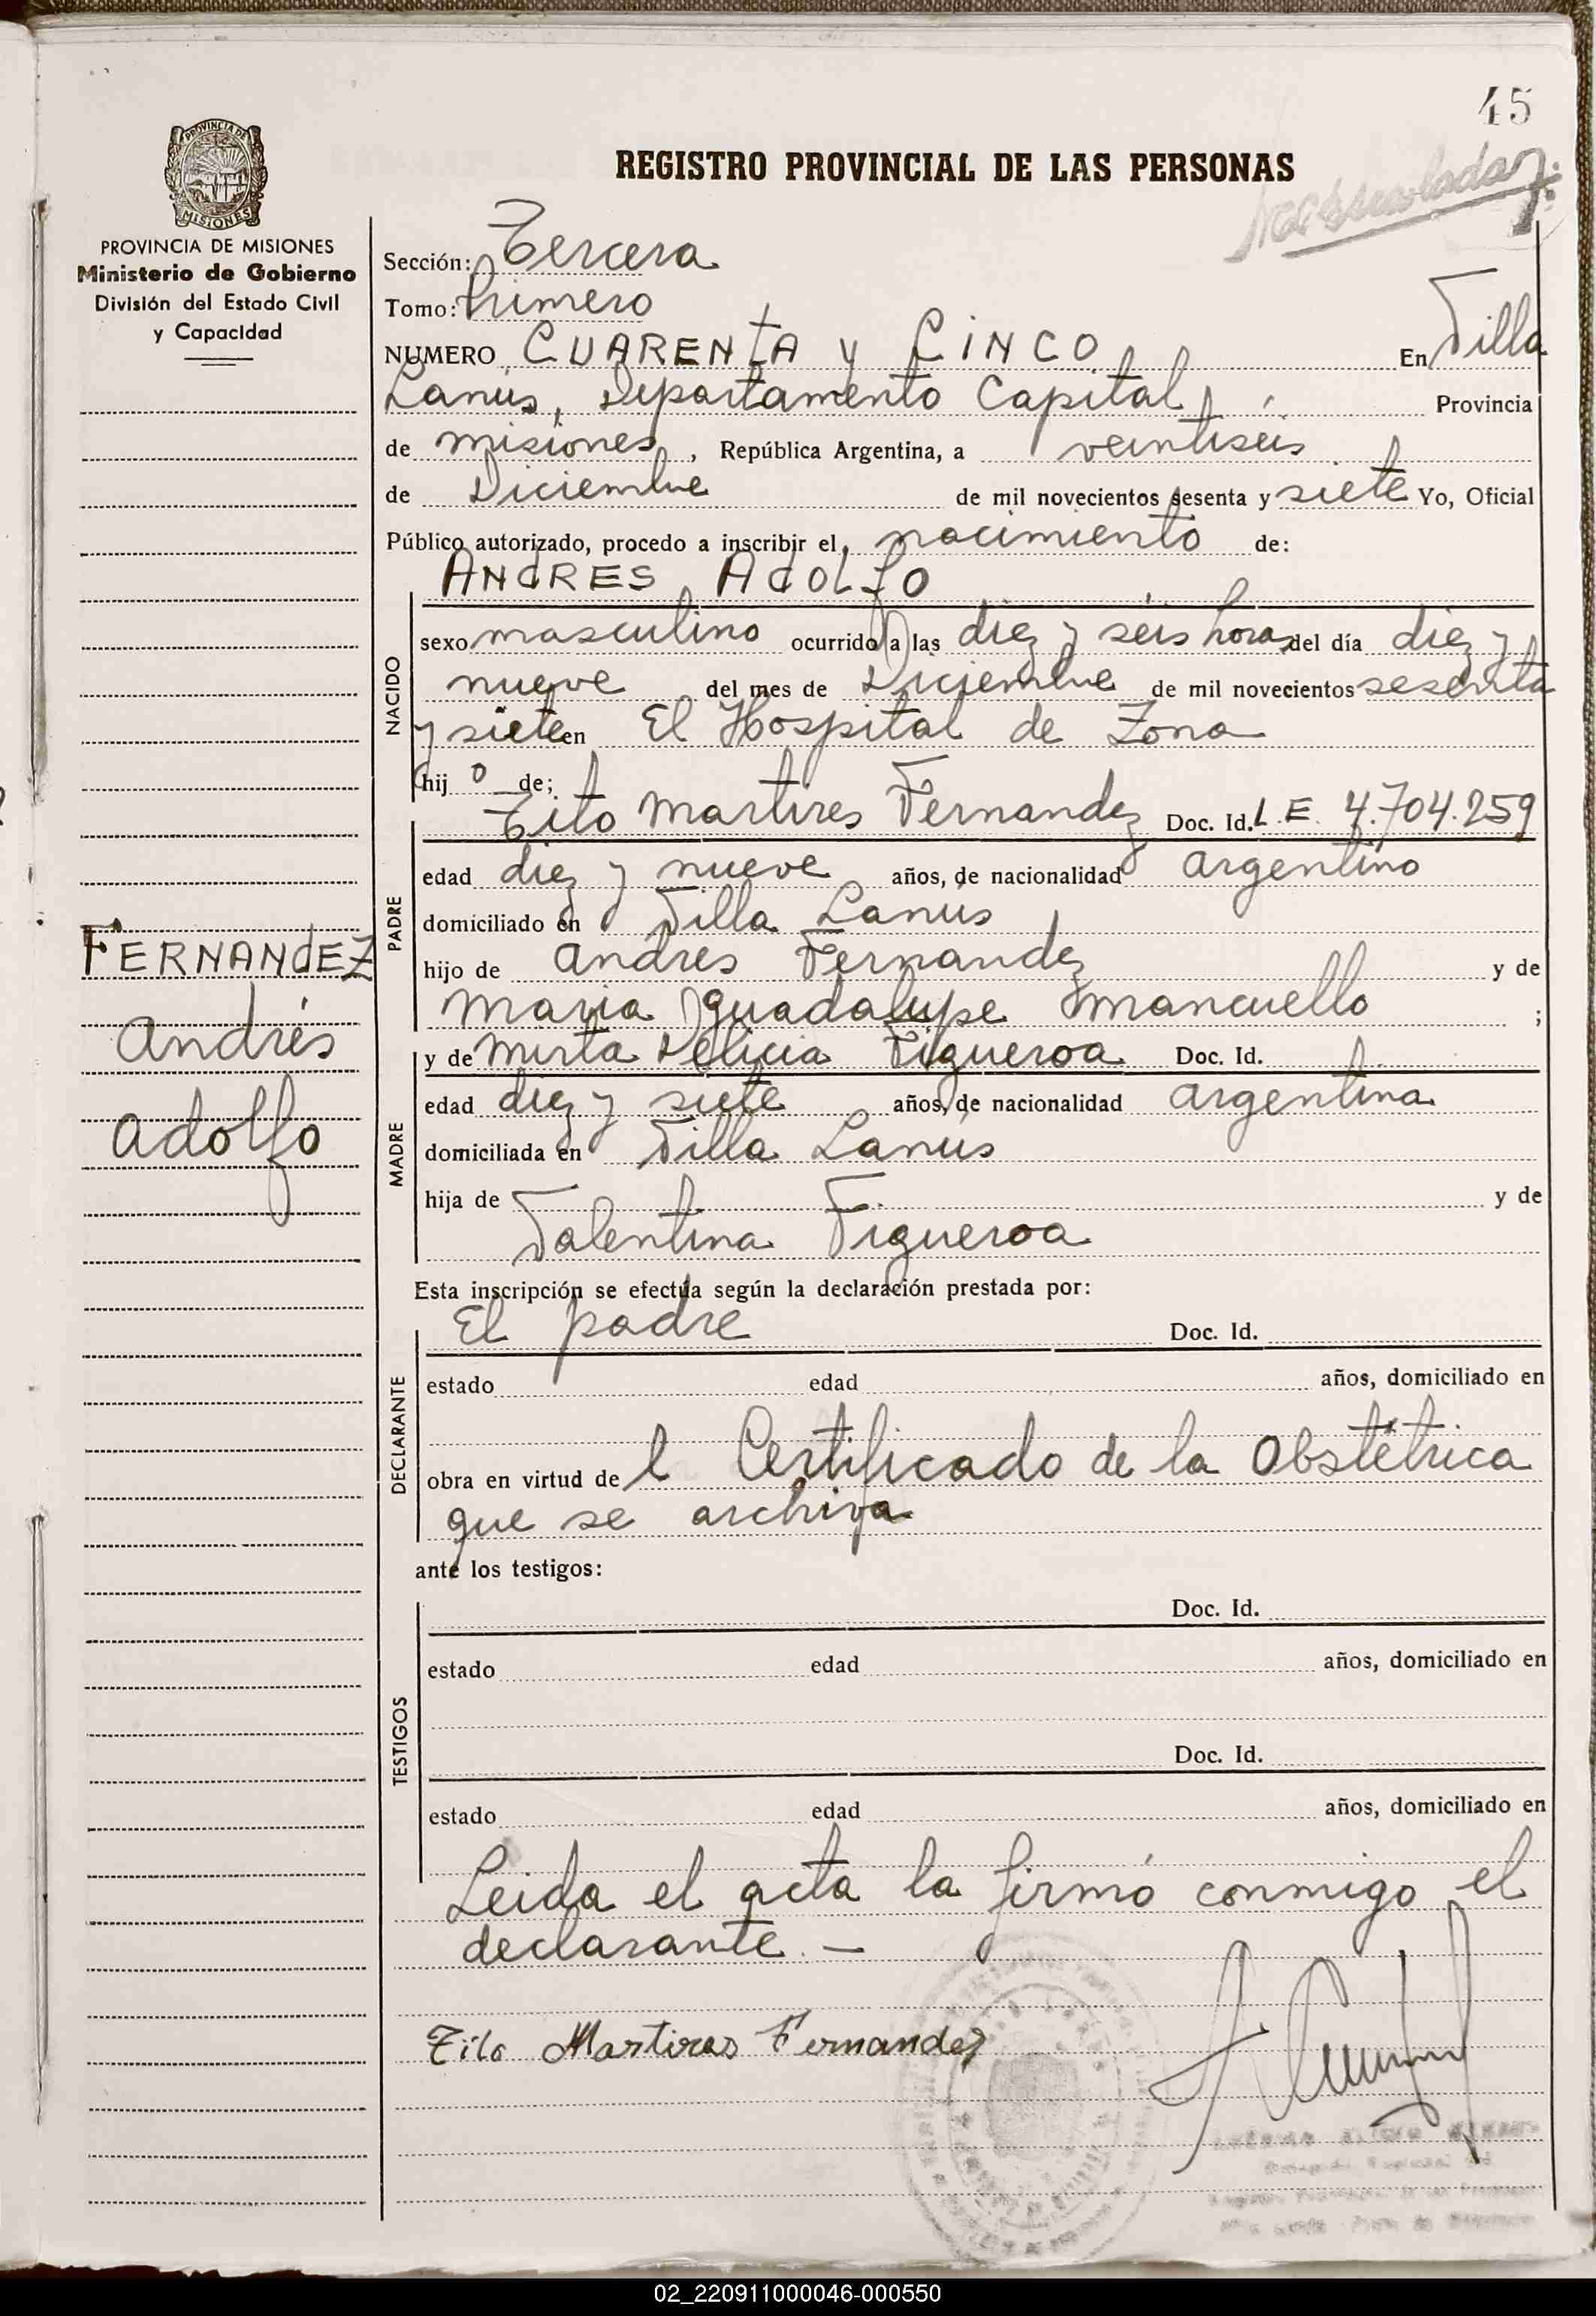 45
REGISTRO PROVINCIAL DE LAS PERSONAS
PROVINCIA DE MISIONES
PROVINCIA DE MISIONES
Ministerio de Gobierno
División del Estado Civil
y Capacidad
Sección: Tercera
Tomo: Primero
NUMERO CUARENTA y CINCO En Villa
Lanús, Departamento Capital, Provincia
de misiones, República Argentina, a veintiseis
de Diciembre de mil novecientos sesenta y siete Yo, Oficial
Público autorizado, procedo a inscribir el nacimiento de:
ANdRES AdOLfO
NACIDO
sexo masculino ocurrido a las diez y seis horas del día diez y
nueve del mes de Diciembre de mil novecientos sesenta
y siete en El Hospital de Zona
hij o de;
Tito Martires Fernandez Doc. Id. L.E. 4.704.259
PADRE
edad diez y nueve años, de nacionalidad argentino
domiciliado en Villa Lanús
hijo de Andres Fernandez y de
Maria Guadalupe Mancuello ;
FERNANdEZ
Andrés
Adolfo
y de Mirta Delicia Figueroa Doc. Id.
MADRE
edad diez y siete años, de nacionalidad argentina
domiciliada en Villa Lanús
hija de y de
Valentina Figueroa
Esta inscripción se efectúa según la declaración prestada por:
El padre Doc. Id.
DECLARANTE
estado edad años, domiciliado en
obra en virtud de l Certificado de la Obstétrica
que se archiva
ante los testigos:
Doc. Id.
TESTIGOS
estado edad años, domiciliado en
Doc. Id.
estado edad años, domiciliado en
Leida el acta la firmó conmigo el
declarante. —
Tito Martires Fernandez
02_220911000046-000550